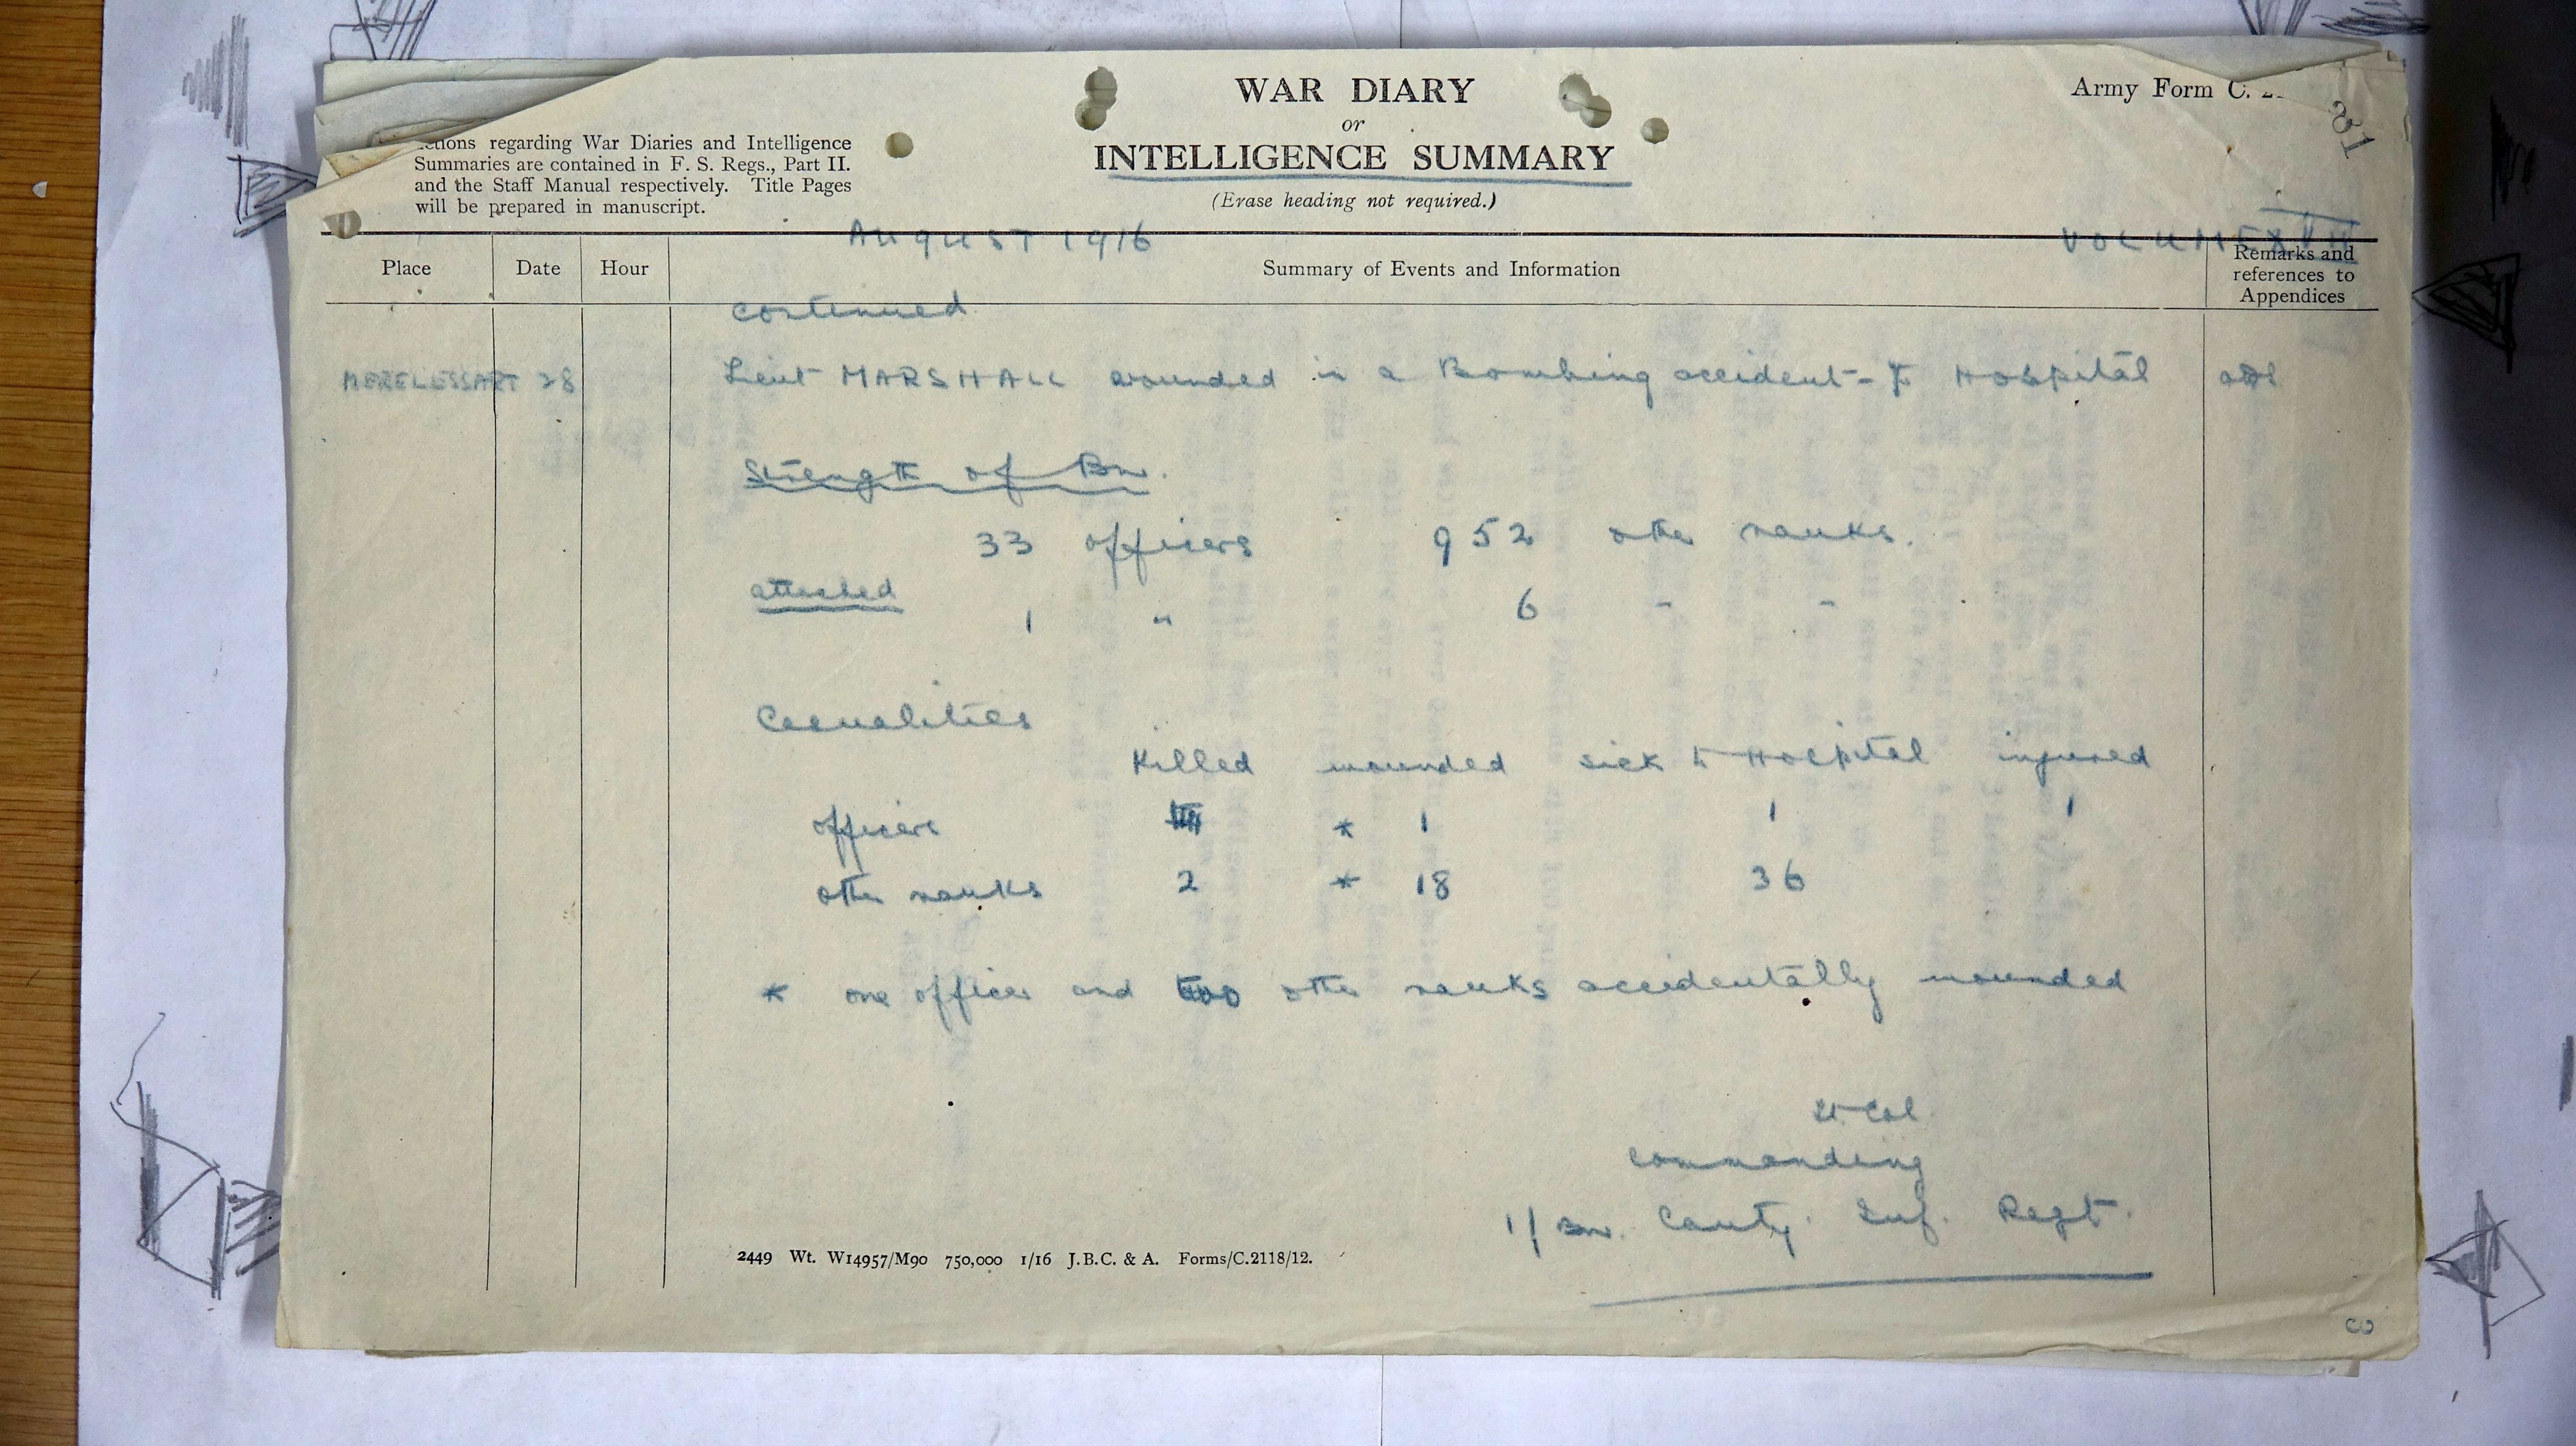 WAR DIARY
or
INTELLIGENCE SUMMARY
(Erase heading not required.)
Army Form C.
regarding War Diaries and Intelligence
Summaries are contained in F. S. Regs., Part II.
and the Staff Manual respectively. Title Pages
will be prepared in manuscript.
AUGUST 1916
VOLUME
Place Date Hour Summary of Events and Information Remarks and
references to
Appendices
continued
28 Lieut MARSHALL wounded in a Bombing accident - To Hospital
Strength of Bn.
33 officers 952 other ranks.
attached
1 " 6 " "
Casualities
Killed wounded sick to Hospital injured
officers * 1 1 1
other ranks 2 * 18 36
* one officer and two other ranks accidentally wounded
Lt Col
commanding
1/ Bn. Canty. Inf. Regt.
2449 Wt. W14957/M90 750,000 1/16 J.B.C. & A. Forms/C.2118/12.